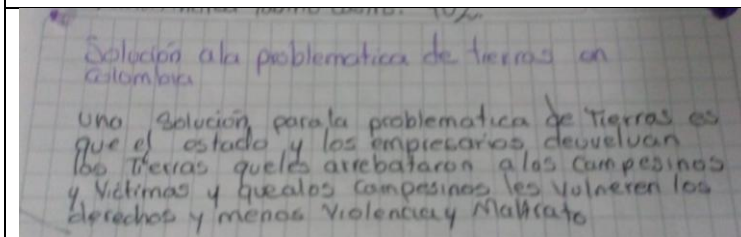 Solución ala problematica de tierras en
Colombia
una solución parala problematica de Tierras es
que el estado y los empresarios devuelvan
las Tierras queles arrebataron a los campesinos
y Victimas y quealos campesinos les volneren los
derechos y menos violencia y Maltrato